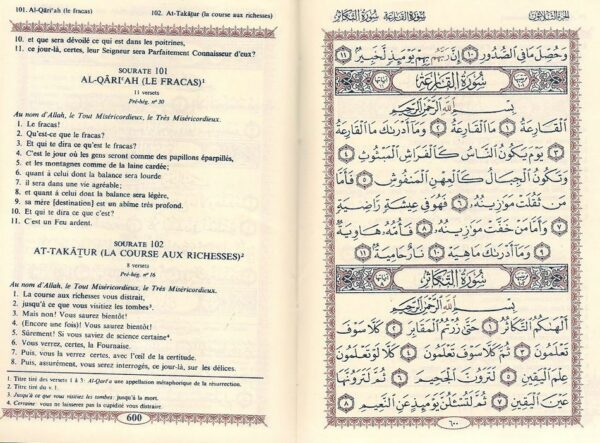 101. Al-Qāri‘ah (le fracas) 102. At-Takāṯur (la course aux richesses)
10. et que sera dévoilé ce qui est dans les poitrines,
11. ce jour-là, certes, leur Seigneur sera Parfaitement Connaisseur d'eux?
SOURATE 101
AL-QĀRI‘AH (LE FRACAS)¹
11 versets
Pré-hég. nº 30
Au nom d'Allah, le Tout Miséricordieux, le Très Miséricordieux.
1. Le fracas!
2. Qu'est-ce que le fracas?
3. Et qui te dira ce qu'est le fracas?
4. C'est le jour où les gens seront comme des papillons éparpillés,
5. et les montagnes comme de la laine cardée;
6. quant à celui dont la balance sera lourde
7. il sera dans une vie agréable;
8. et quant à celui dont la balance sera légère,
9. sa mère [destination] est un abîme très profond.
10. Et qui te dira ce que c'est?
11. C'est un Feu ardent.
SOURATE 102
AT-TAKĀṮUR (LA COURSE AUX RICHESSES)²
8 versets
Pré-hég. nº 16
Au nom d'Allah, le Tout Miséricordieux, le Très Miséricordieux.
1. La course aux richesses vous distrait,
2. jusqu'à ce que vous visitiez les tombes³.
3. Mais non! Vous saurez bientôt!
4. (Encore une fois)! Vous saurez bientôt!
5. Sûrement! Si vous saviez de science certaine⁴.
6. Vous verrez, certes, la Fournaise.
7. Puis, vous la verrez certes, avec l'œil de la certitude.
8. Puis, assurément, vous serez interrogés, ce jour-là, sur les délices.
1. Titre tiré des versets 1 à 3: Al-Qari'a une appellation métaphorique de la résurrection.
2. Titre tiré du v. 1.
3. Jusqu'à ce que vous visitiez les tombes: jusqu'à la mort.
4. Certaine: vous ne laisserez pas la cupidité vous distraire.
600
سُورَةُ القَارِعَةِ سُورَةُ التَّكَاثُرِ
وَحُصِّلَ مَا فِي الصُّدُورِ ١٠ إِنَّ رَبَّهُم بِهِمْ يَوْمَئِذٍ لَّخَبِيرٌ ١١
سُورَةُ القَارِعَةِ
بِسْمِ اللَّهِ الرَّحْمَٰنِ الرَّحِيمِ
الْقَارِعَةُ ١ مَا الْقَارِعَةُ ٢ وَمَا أَدْرَاكَ مَا الْقَارِعَةُ
٣ يَوْمَ يَكُونُ النَّاسُ كَالْفَرَاشِ الْمَبْثُوثِ ٤
وَتَكُونُ الْجِبَالُ كَالْعِهْنِ الْمَنفُوشِ ٥ فَأَمَّا
مَن ثَقُلَتْ مَوَازِينُهُ ٦ فَهُوَ فِي عِيشَةٍ رَّاضِيَةٍ
٧ وَأَمَّا مَنْ خَفَّتْ مَوَازِينُهُ ٨ فَأُمُّهُ هَاوِيَةٌ
٩ وَمَا أَدْرَاكَ مَا هِيَهْ ١٠ نَارٌ حَامِيَةٌ ١١
سُورَةُ التَّكَاثُرِ
بِسْمِ اللَّهِ الرَّحْمَٰنِ الرَّحِيمِ
أَلْهَاكُمُ التَّكَاثُرُ ١ حَتَّىٰ زُرْتُمُ الْمَقَابِرَ ٢ كَلَّا سَوْفَ
تَعْلَمُونَ ٣ ثُمَّ كَلَّا سَوْفَ تَعْلَمُونَ ٤ كَلَّا لَوْ تَعْلَمُونَ
عِلْمَ الْيَقِينِ ٥ لَتَرَوُنَّ الْجَحِيمَ ٦ ثُمَّ لَتَرَوُنَّهَا
عَيْنَ الْيَقِينِ ٧ ثُمَّ لَتُسْأَلُنَّ يَوْمَئِذٍ عَنِ النَّعِيمِ ٨
٦٠٠